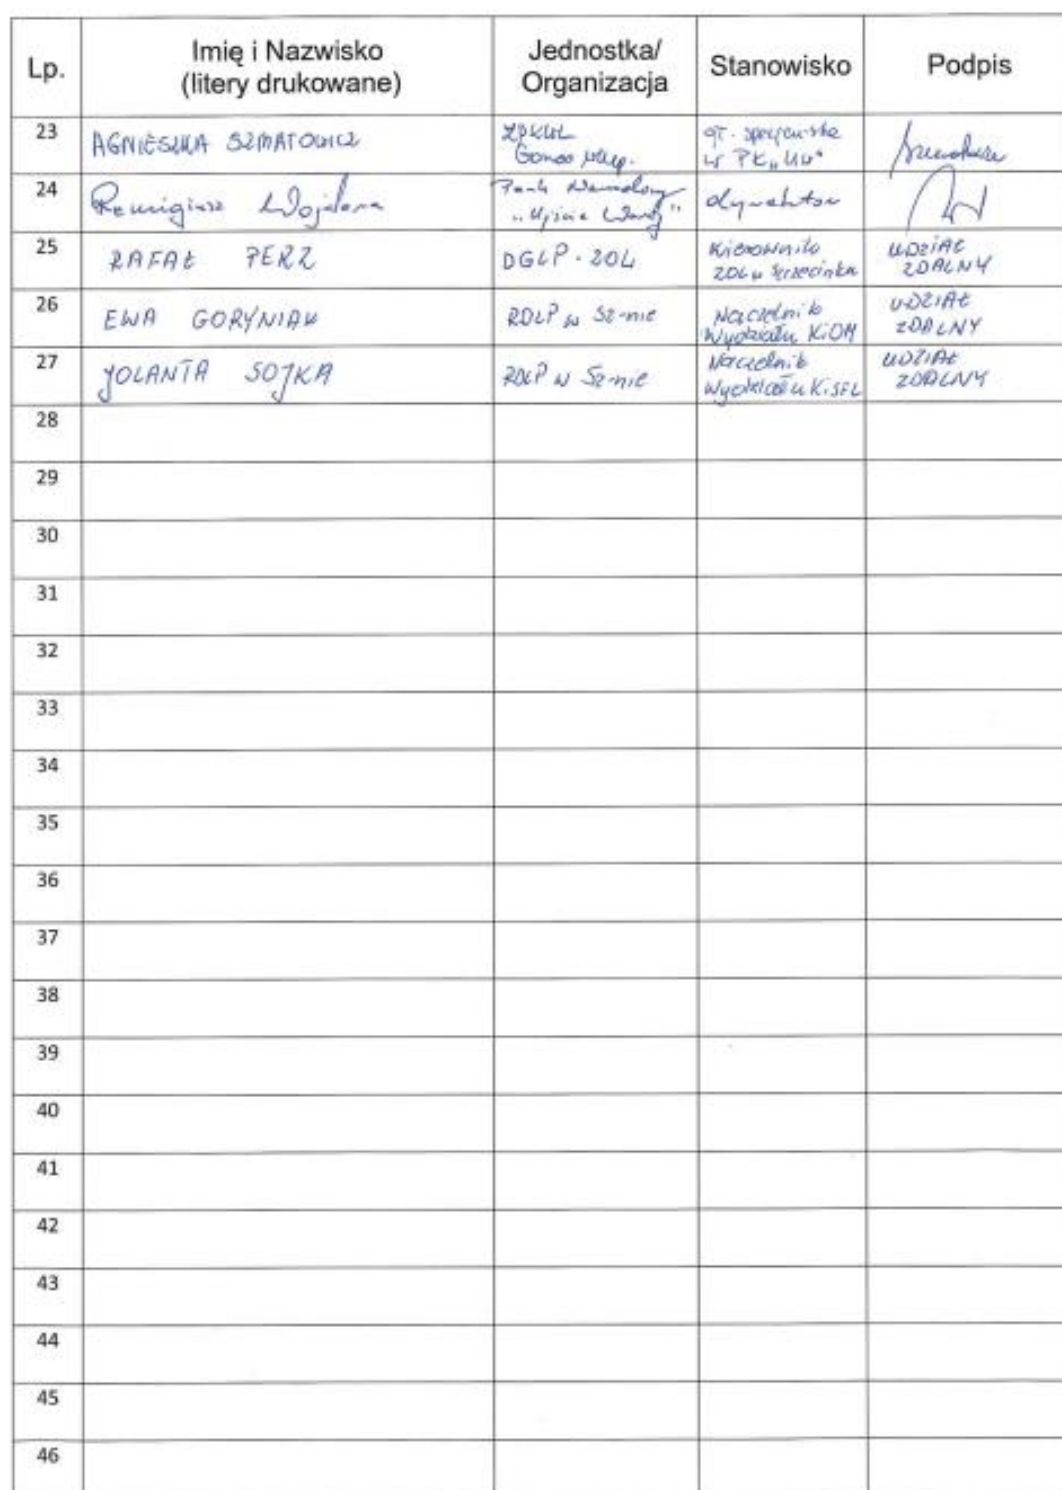 Lp.
Imię i Nazwisko
(litery drukowane)
Jednostka/
Organizacja
Stanowisko
Podpis
23
AGNIESZKA SZMATOWICZ
ZPKWL
Gorzów Wlkp.
gł. specjalista
w PK „UW"
24
Remigiusz
Park Narodowy
„Ujście Warty"
dyrektor
25
RAFAŁ PERZ
DGLP - ZOL
Kierownik
ZOL w Szczecinku
UDZIAŁ
ZDALNY
26
EWA GORYNIAK
RDLP w Sz-nie
Naczelnik
Wydziału KiOM
UDZIAŁ
ZDALNY
27
JOLANTA SOJKA
RDLP w Sz-nie
Naczelnik
Wydziału
UDZIAŁ
ZDALNY
28
29
30
31
32
33
34
35
36
37
38
39
40
41
42
43
44
45
46